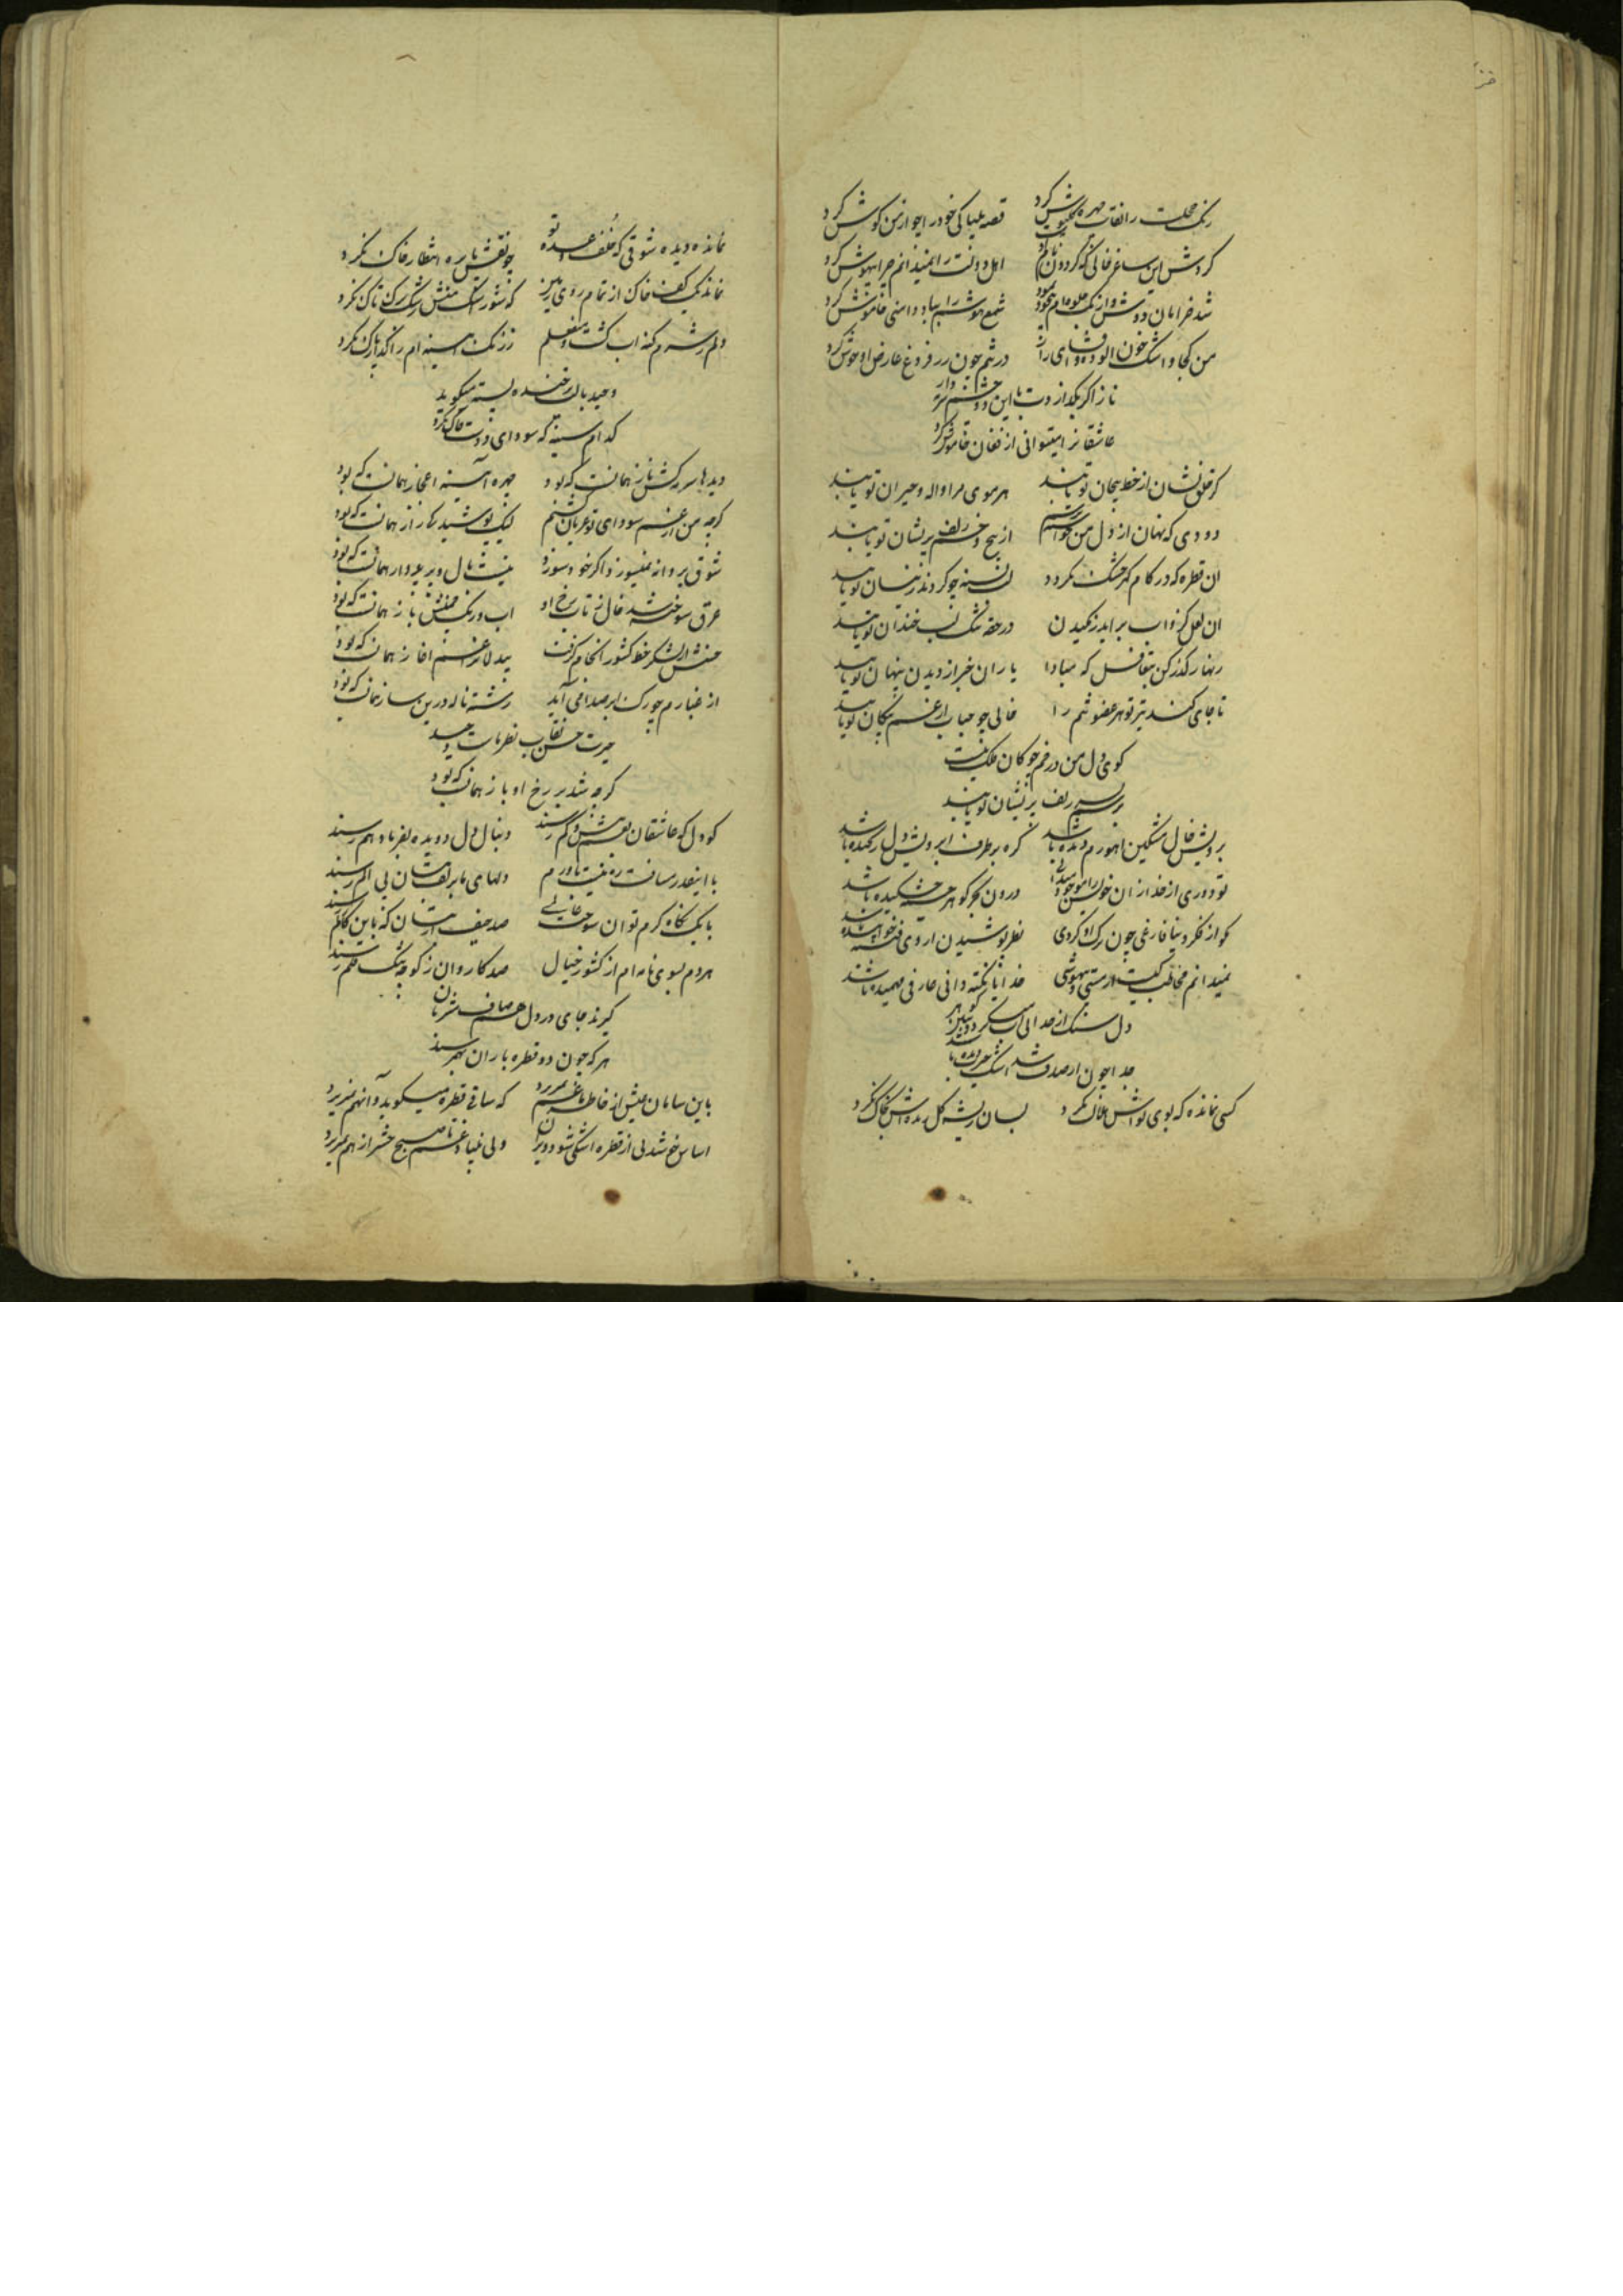 رنک خجلت را نقاب چهره کرد قصه بیباکی خود را چو از من کوش کرد
کردش این ساغر خالی که کردون نام اوست اهل دولت را نمیدانم چرا بیهوش کرد
شد خرامان دوش و از یک جلوه شمع هوشم را بباد دامنی خاموش کرد
من کجا و اشک خون الوده در شم چون در فروغ عارض او جوش کرد
ناز اکر بکذاردت با این دو چشم
عاشقانرا میتوانی از فغان خاموش کرد
کر خلق نشان از خط ریحان تو یابند هر موی مرا واله و حیران تو یابند
دودی که نهان از دل من از پیچ و خم زلف پریشان تو یابند
ان قطره که در کام کهر خشک نکردد لب تشنه چو کردند ز نیسان تو یابند
ان لعل کزو اب براید ز مکیدن در حقه تنک لب خندان تو یابند
زنهار کذر کن بتغافل که مبادا یاران خبر از دیدن پنهان تو یابند
تا جای کند تیر تو هر عضو تنم را خالی چو حباب از غم پیکان تو یابند
کوی دل من در خم چوکان فلک نیست
در زلف پریشان تو یابند
برویش خال مشکین اهوی رم دیده باشد کره بر طرف ابرویش دل رنجیده باشد
تو دوری از خدا زان درون بحر کوهر چشم خشکیده باشد
مکو از فکر دنیا فارغی چون ترک او کردی نظر پوشیدن از وی فتنه خوابیده باشد
نمیدانم مخاطب کیست از مستی و بیهوشی خدایا نکته دانی عارفی فهمیده باشد
دل سنک از جدائی آب میکردد
جدا چون از صدف شد اشک
کسی نمانده که بوی تواش هلاک نکرد بسان ریشه کل بخاک نکرد
نمانده دیده شوقی که خلف وعده تو چو نقش پا بره انتظار خاک نکرد
نماند یک کف خاک از تمام روی زمین که شور اشک منش رشک تاک نکرد
دلم ز شرم کنه اب کشت و منفعلم ز زنک اینه ام را کداز پاک نکرد
وحید با لب پر خنده پسته میکوید
کدام سینه که سودای دوست چاک نکرد
دیدها سرمه کش ناز همانست که بود چهره آئینه اعجاز همانست که بود
کرچه من از غم سودای تو عریان کشتم لیک پوشیدکی راز همانست که بود
شوق پروانه نمیسوزد اکر خود سوزد نیست بال و پر و پرواز همانست که بود
عرق سوخته شد خال ز تاب رخ او اب و رنک چمنش باز همانست که بود
حسنش از لشکر خط کشور انجام کرفت بیدلانرا غم اغاز همانست که بود
از غبارم چو رک ابر صدا می آید رشته ناله درین ساز همانست که بود
حیرت حسن نقاب نظر ماست وحید
کرچه شد پر رخ او باز همانست که بود
کو دل که عاشقان بغم بیش و کم رسند دنبال دل دویده بفریاد هم رسند
با اینقدر مسافت ره نیست باورم دلهای ما بزلف بتان بی الم رسند
با یک نکاه کرم توان سوخت عالمی صد حیف از بتان که باین کار کم رسند
هر دم بسوی نامه ام از کشور خیال صد کاروان ز کوچه تنک قلم رسند
کیرند جای در دل هم صاف مشربان
هر که چون دو قطره باران بهم رسند
باین سامان عیش از خاطر ما غم نمیریزد که ساقی قطره میکوید و آنهم نمیریزد
اساس خوشدلی از قطره اشکی شود ویران ولی بنیاد غم تا صبح حشر از هم نمیریزد